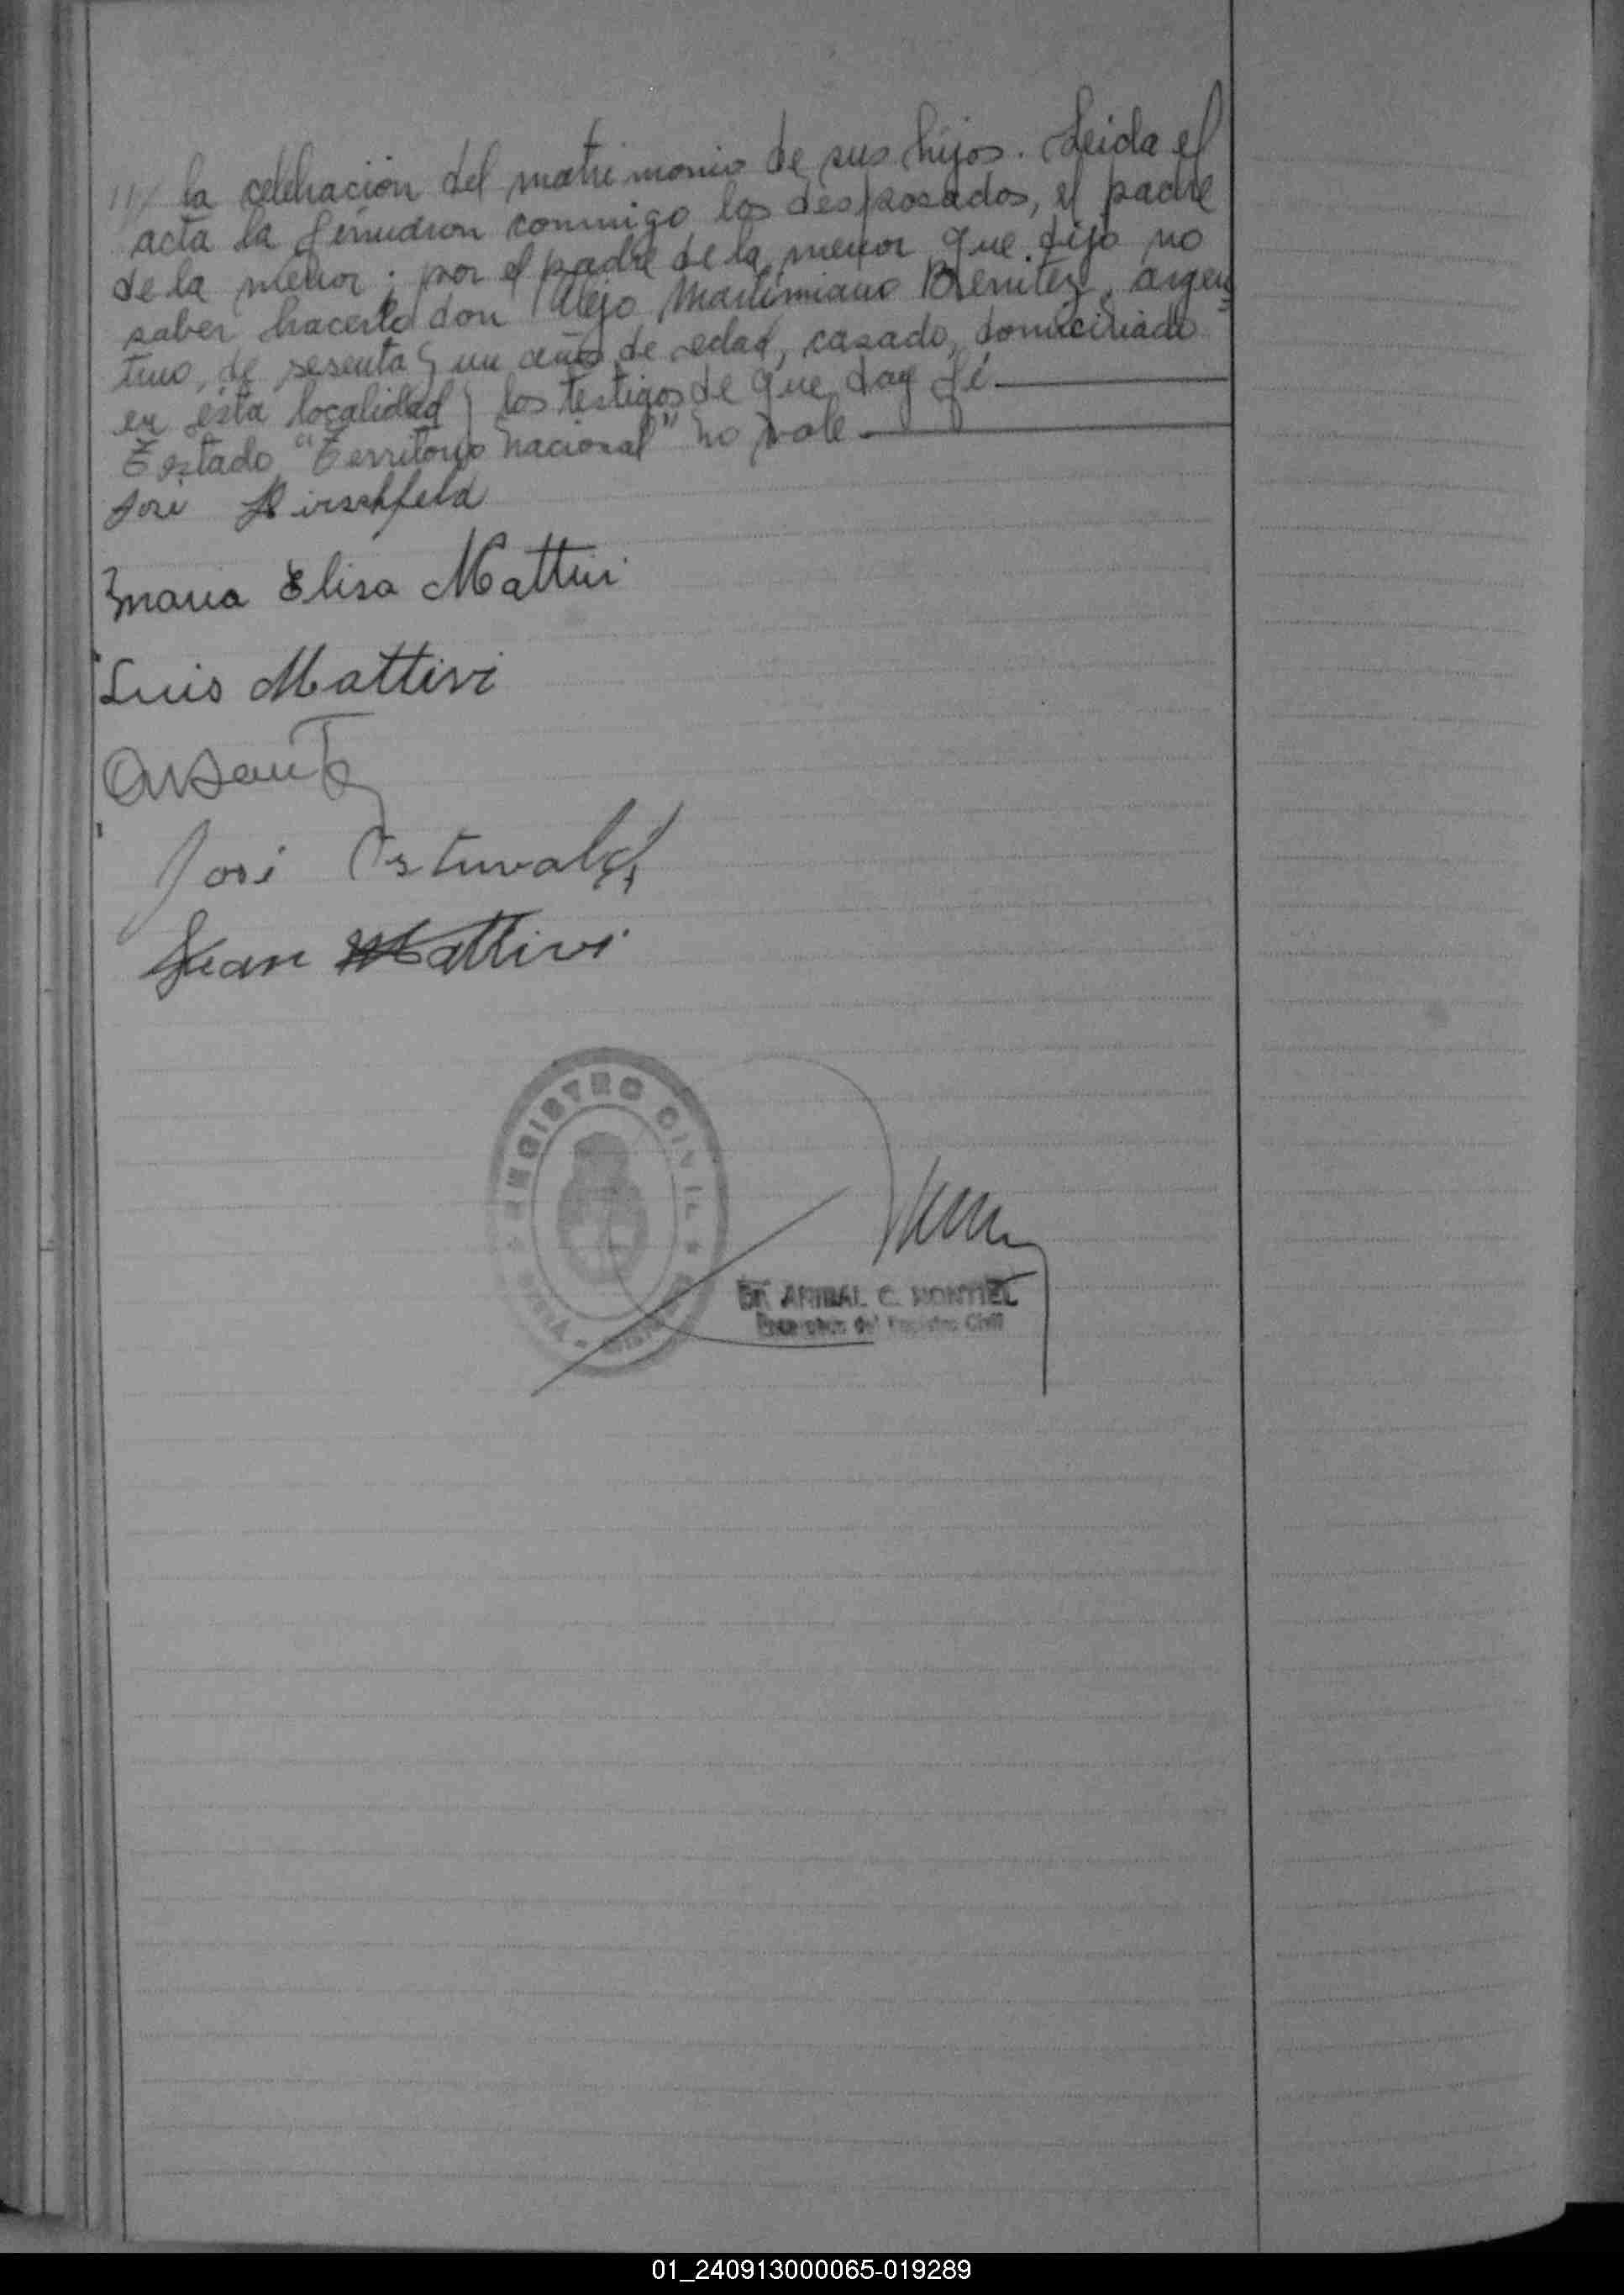 /// la celebración del matrimonio de sus hijos. Leida el
acta la firmaron conmigo, los desposados, el padre
de la menor; por el padre de la menor que dijo no
saber hacerlo don Alejo Maximiano Benitez, argen-
tino, de sesenta y un años de edad, casado, domiciliado
en ésta localidad y los testigos de que doy fé.
Testado "Territorio Nacional" no vale
José Hirschfeld
Maria Elisa Mattivi
Luis Mattivi
José Ostwald
Juan Mattivi
REGISTRO CIVIL
DR. ANIBAL C. MONTIEL
Encargado del Registro Civil
01_240913000065-019289